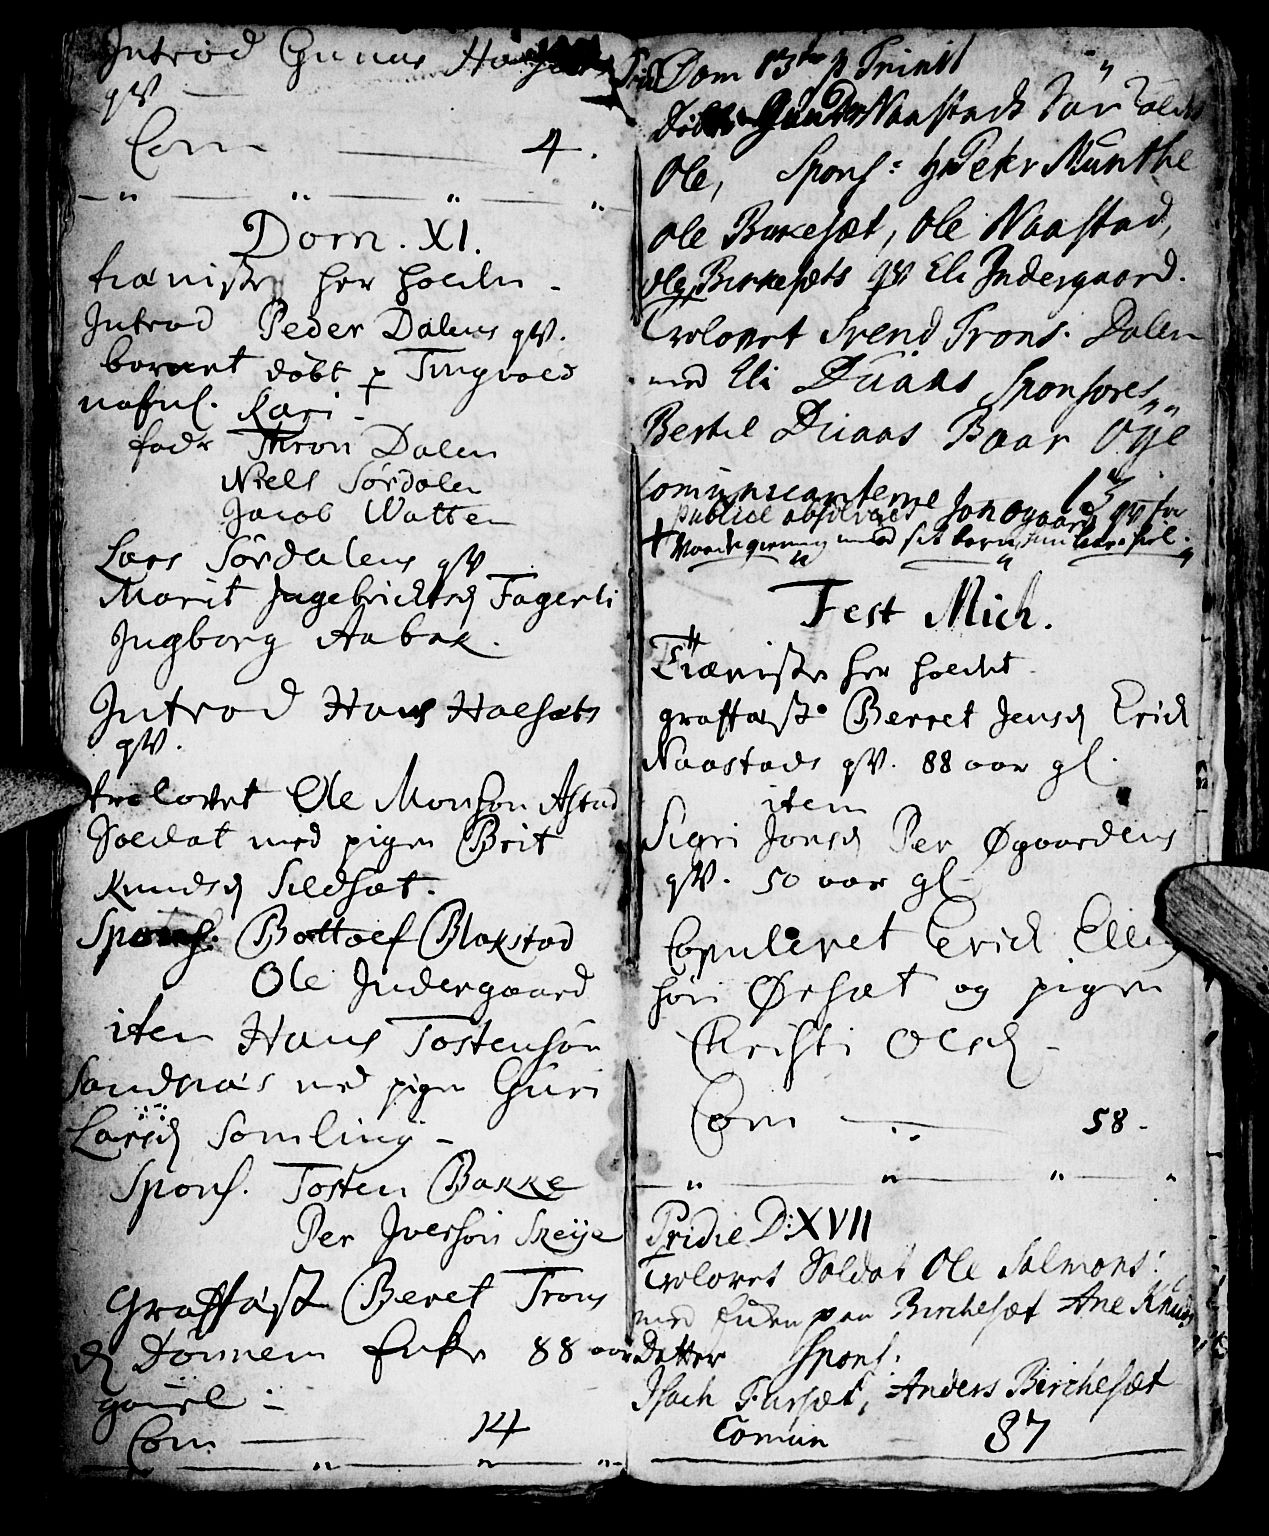 Introd Gunnr
qv —
Com ——— 4.
Dom. XI.
tieniste her holden -
Introd Peder Dalens qv.
barnet døbt p Tingvold
nafnl. Kari -
fadr Thron Dalen
Niels Sørdalen
Jacob Watten
Lars Sørdalens qv
Marit Ingebrichtsd Fagerli
Ingborg Aabak.
Introd Hans Halsæts
qv.
trolovet Ole Monsøn Astad
Soldat med pigen Brit
Knudsd Sildsæt.
Spons. Bottolf Blakstad
Ole Indergaard
item Hans Tostensøn
Sandnæs med pigen Guri
Larsd Somling -
Spons. Tosten Bakke
Per Iversøn Skeije
Graffæst Beret Trons
d Dønnem Enke 88 aar
gamel -
Com ——— 14
Dom 13tie p Trinit
Naastads
Ole, Spons: hr Petr Munthe
Ole Birkesæt, Ole Naastad,
Ole Birkesæts qv Eli Indergaard.
Trolovet Svend Trons. Dalen
med Eli Duaas Sponsores
Bertel Duaas Baar Øÿe
Communicanterne 13
publice absolveret Jon Øgaard qv for
med sit barn
Fest Mich.
Tieniste her holdet.
graffæst Berret Jensd Erich
Naastads qv. 88 aar gl.
item
Sigri Jonsd Per Øgaardens
qv. 50 aar gl -
Copuleret Erich Ellings
søn Ørsæt og pigen
Christi Olsd -
Com ——— 58 -
Pridie D: XVII
Trolovet Soldat Ole Salmons:
med Enken paa Birchesæt Ane Knuds
Datter Spons:
Isach Fursæt, Anders Birchesæt
Comun — 37